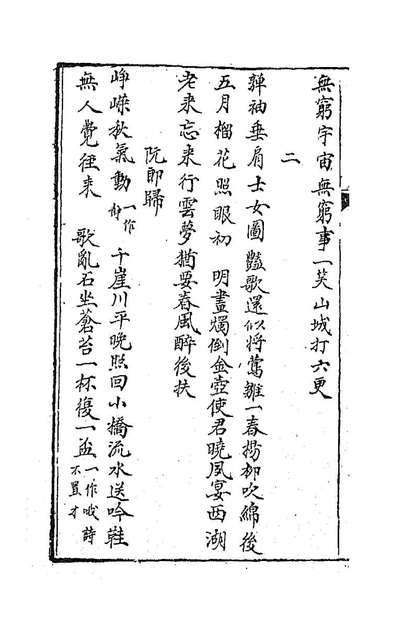 無窮宇宙無窮事一笑山城打六更
二
軃袖垂肩士女圖豔歌還似將鶯雛一春楊柳吹綿後
五月榴花照眼初 明畫燭倒金壺使君曉風宴西湖
老来忘来行雲夢猶要春風醉後扶
阮郎歸
崢嶸秋氣動一作靜千崖川平晚照回小橋流水送吟鞋
無人覺徃来 歌亂石坐蒼苔一杯復一盃一作哦詩不置才